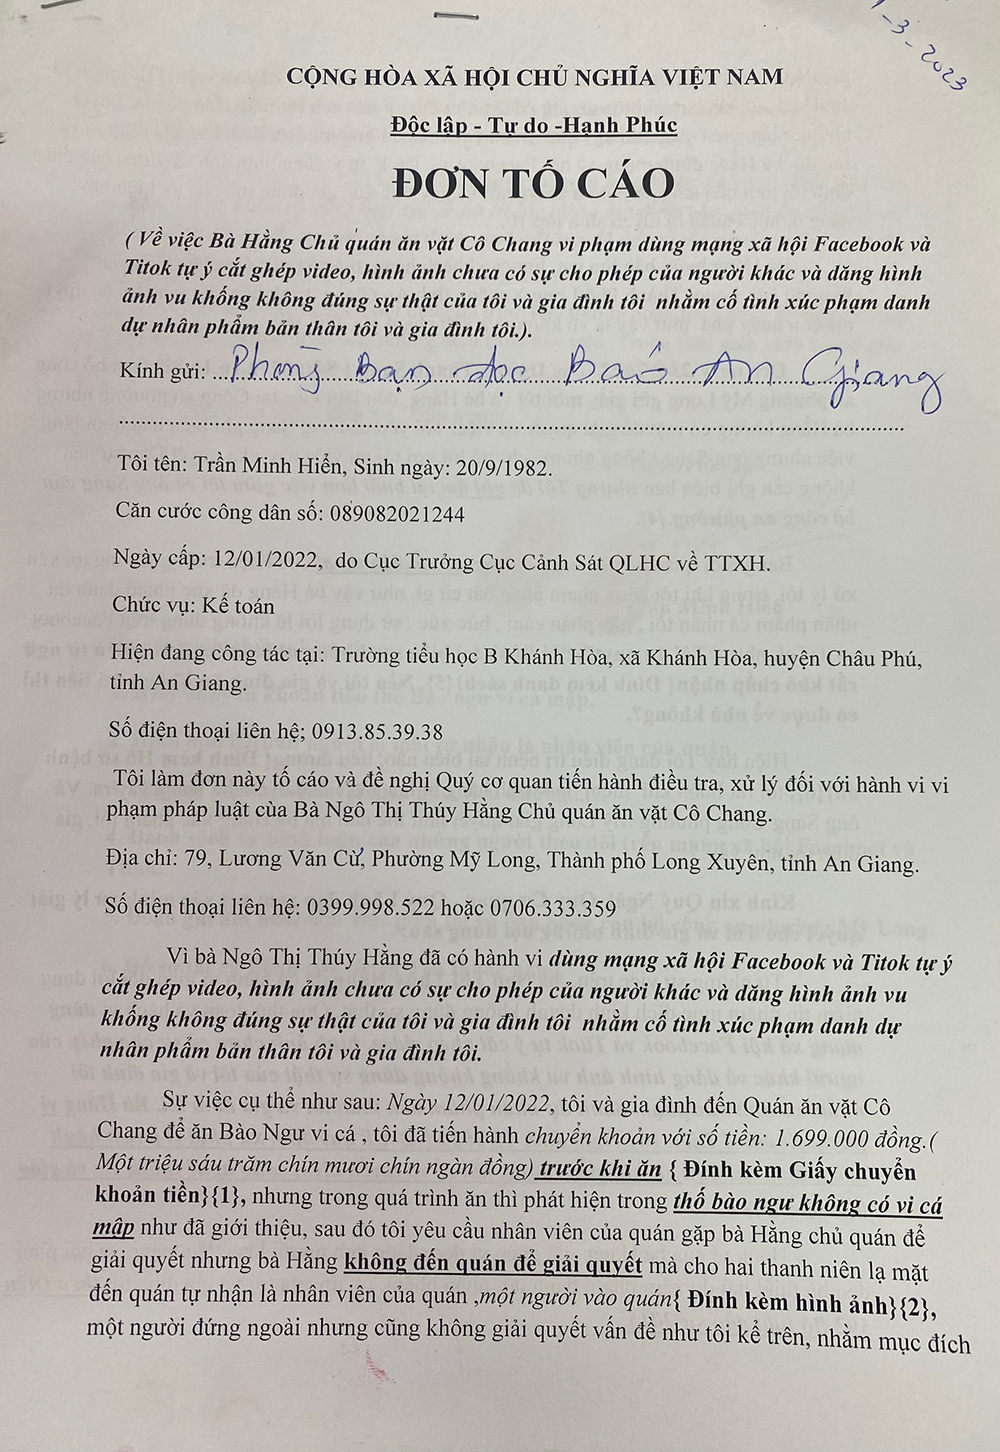 -3-2023
CỘNG HÒA XÃ HỘI CHỦ NGHĨA VIỆT NAM
Độc lập - Tự do -Hạnh Phúc
ĐƠN TỐ CÁO
( Về việc Bà Hằng Chủ quán ăn vặt Cô Chang vi phạm dùng mạng xã hội Facebook và
Titok tự ý cắt ghép video, hình ảnh chưa có sự cho phép của người khác và dăng hình
ảnh vu khống không đúng sự thật của tôi và gia đình tôi nhằm cố tình xúc phạm danh
dự nhân phẩm bản thân tôi và gia đình tôi.).
Kính gửi: Phòng Bạn đọc Báo An Giang
Tôi tên: Trần Minh Hiển, Sinh ngày: 20/9/1982.
Căn cước công dân số: 089082021244
Ngày cấp: 12/01/2022, do Cục Trưởng Cục Cảnh Sát QLHC về TTXH.
Chức vụ: Kế toán
Hiện đang công tác tại: Trường tiểu học B Khánh Hòa, xã Khánh Hòa, huyện Châu Phú,
tỉnh An Giang.
Số điện thoại liên hệ; 0913.85.39.38
Tôi làm đơn này tố cáo và đề nghị Quý cơ quan tiến hành điều tra, xử lý đối với hành vi vi
phạm pháp luật cùa Bà Ngô Thị Thúy Hằng Chủ quán ăn vặt Cô Chang.
Địa chỉ: 79, Lương Văn Cừ, Phường Mỹ Long, Thành phố Long Xuyên, tỉnh An Giang.
Số điện thoại liên hệ: 0399.998.522 hoặc 0706.333.359
Vì bà Ngô Thị Thúy Hằng đã có hành vi dùng mạng xã hội Facebook và Titok tự ý
cắt ghép video, hình ảnh chưa có sự cho phép của người khác và dăng hình ảnh vu
khống không đúng sự thật của tôi và gia đình tôi nhằm cố tình xúc phạm danh dự
nhân phẩm bản thân tôi và gia đình tôi.
Sự việc cụ thể như sau: Ngày 12/01/2022, tôi và gia đình đến Quán ăn vặt Cô
Chang để ăn Bào Ngư vi cá , tôi đã tiến hành chuyển khoản với số tiền: 1.699.000 đồng.(
Một triệu sáu trăm chín mươi chín ngàn đồng) trước khi ăn { Đính kèm Giấy chuyển
khoản tiền}{1}, nhưng trong quá trình ăn thì phát hiện trong thố bào ngư không có vi cá
mập như đã giới thiệu, sau đó tôi yêu cầu nhân viên của quán gặp bà Hằng chủ quán để
giải quyết nhưng bà Hằng không đến quán để giải quyết mà cho hai thanh niên lạ mặt
đến quán tự nhận là nhân viên của quán ,một người vào quán{ Đính kèm hình ảnh}{2},
một người đứng ngoài nhưng cũng không giải quyết vấn đề như tôi kể trên, nhằm mục đích